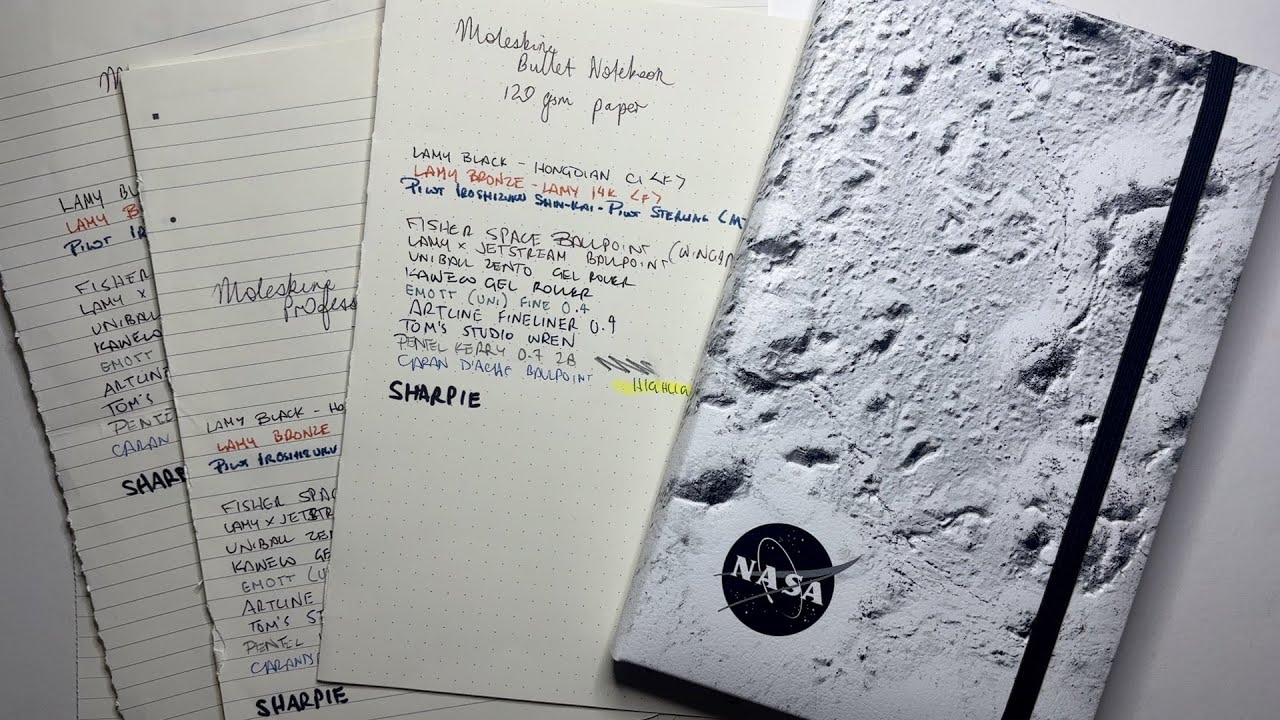 M
LAMY BL
LAMY B
PILOT IR
FISHER
LAMY X
UNIBALL
KAWECO
EMOTT
ARTLINE
TOM'S
PENTEL
CARAN
SHARP
Moleskine
Profess
LAMY BLACK - HO
LAMY BRONZE
PILOT IROSHIZUKU
FISHER SPAC
LAMY X JETSTR
UNIBALL ZE
KAWECO GE
EMOTT (U
ARTLINE
TOM'S ST
PENTEL
CARAND
SHARPIE
Moleskine
Bullet Notebook
120 gsm paper
LAMY BLACK - HONGDIAN C1 <F>
LAMY BRONZE - LAMY 14K <F>
PILOT IROSHIZUKU SHIN-KAI - PILOT STERLING <M>
FISHER SPACE BALLPOINT (WINGAP
LAMY X JETSTREAM BALLPOINT
UNIBALL ZENTO GEL ROLLER
KAWECO GEL ROLLER
EMOTT (UNI) FINE 0.4
ARTLINE FINELINER 0.4
TOM'S STUDIO WREN
PENTEL KERRY 0.7 2B
CARAN D'ACHE BALLPOINT
HIGHLIG
SHARPIE
NASA